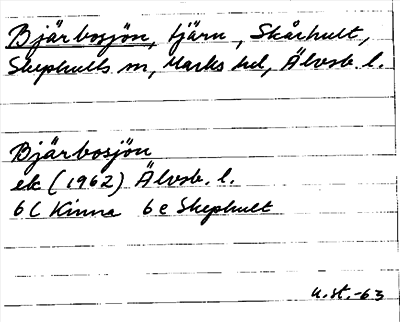 Bjärbosjön, tjärn, Skårhult,
Skephults sn, Marks hd, Älvsb. l.
Bjärbosjön
ek (1962) Älvsb. l.
6C Kinna 6e Skephult
u.st.-63